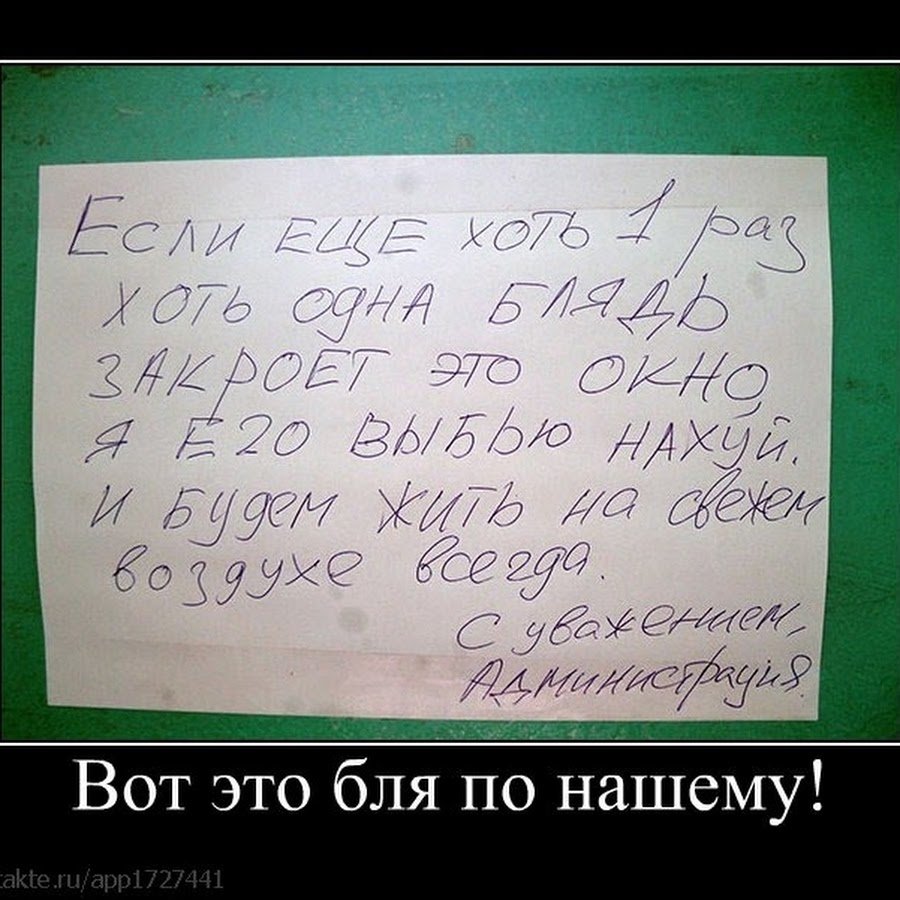 Если ЕЩЕ хоть 1 раз
хоть одна БЛЯДЬ
ЗАКРОЕТ это ОКНО,
я ЕГО ВЫБЬЮ НАХУЙ.
И Будем жить на свежем
воздухе всегда.
С уважением,
Администрация.
Вот это бля по нашему!
akte.ru/app1727441